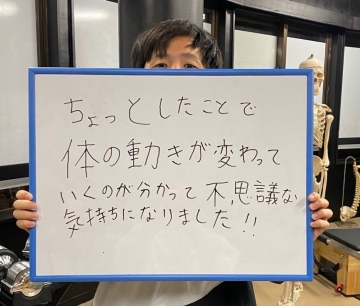 ちょっとしたことで
体の動きが変わって
いくのが分かって不思議な
気持ちになりました!!